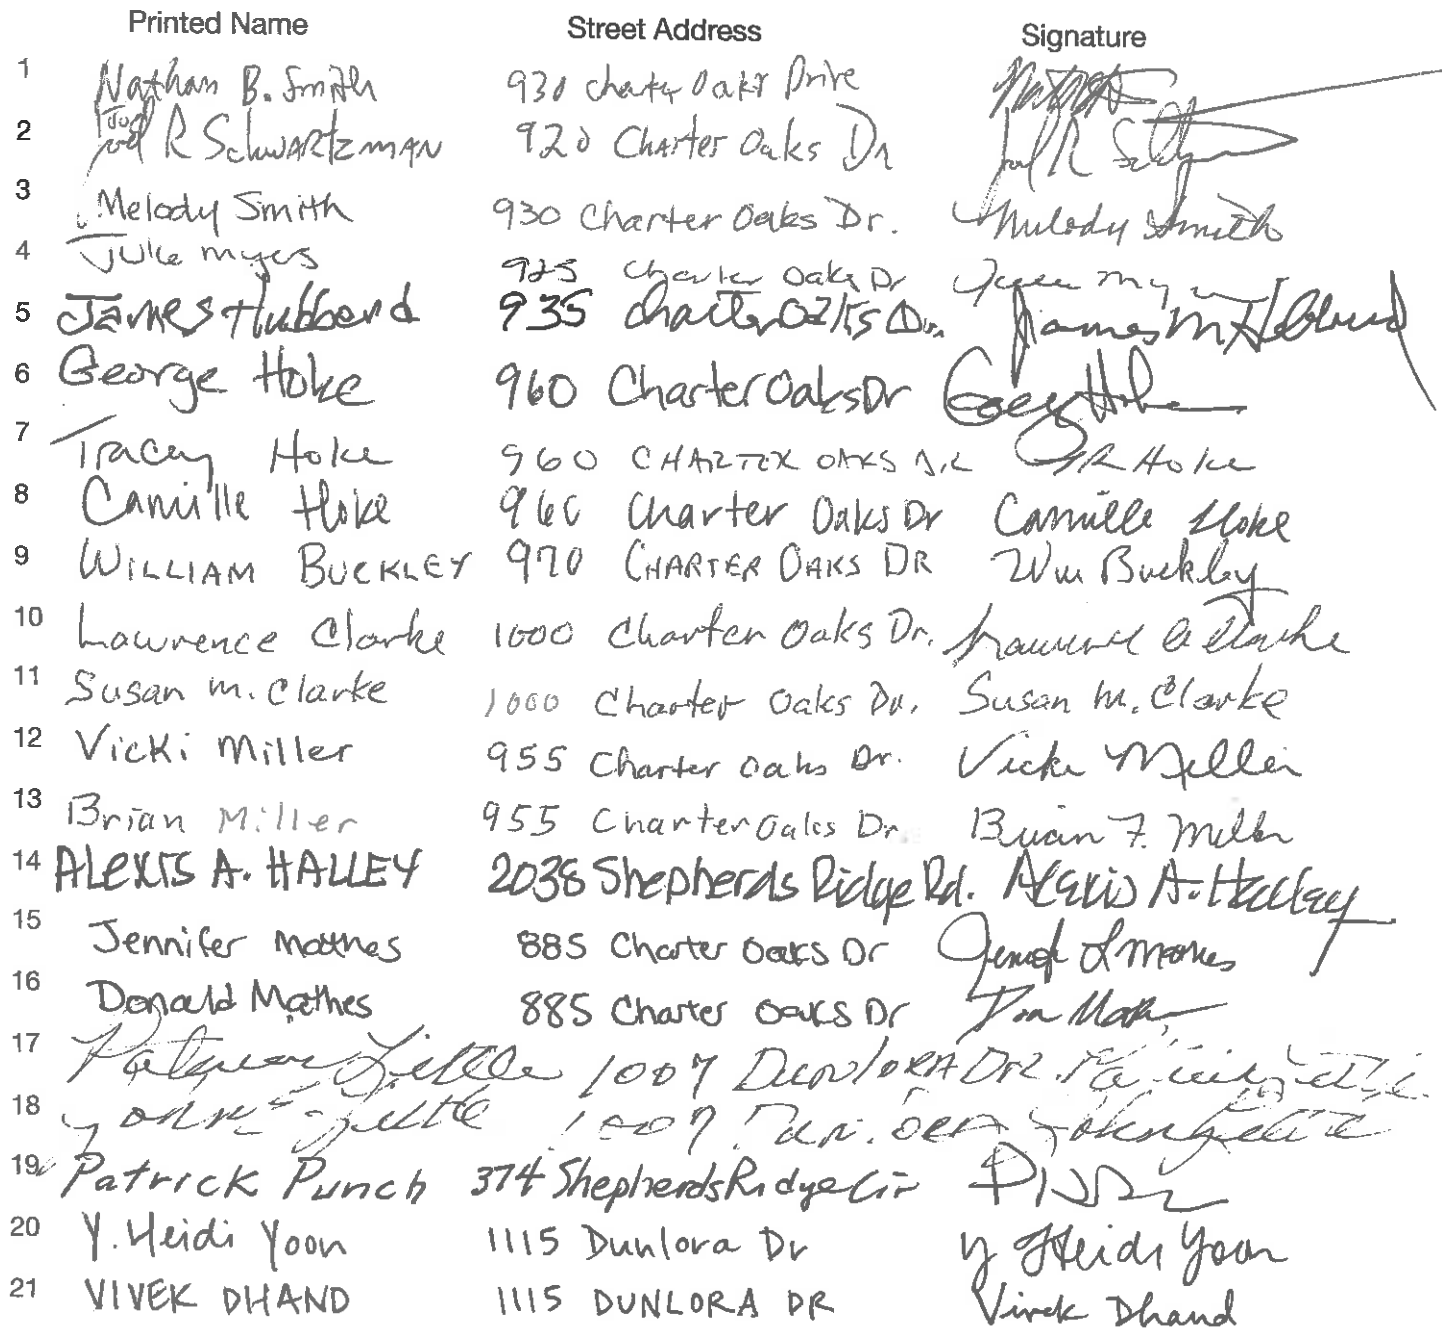 Printed Name Street Address Signature
1 Nathan B. Smith 930 Charter Oaks Drive
2 Joel R Schwartzman 920 Charter Oaks Dr Joel R
3 Melody Smith 930 Charter Oaks Dr. Melody Smith
4 Julie Myers 925 Charter Oaks Dr
5 James Hubbard 935 Charter Oaks Dr. James M Hubbard
6 George Hoke 960 Charter Oaks Dr George Hoke
7 Tracey Hoke 960 CHARTER OAKS DR Hoke
8 Camille Hoke 960 Charter Oaks Dr Camille Hoke
9 WILLIAM BUCKLEY 970 CHARTER OAKS DR Wm Buckley
10 Lawrence Clarke 1000 Charter Oaks Dr. Lawrence Clarke
11 Susan M. Clarke 1000 Charter Oaks Dr. Susan M. Clarke
12 Vicki Miller 955 Charter Oaks Dr. Vicki Miller
13 Brian Miller 955 Charter Oaks Dr. Brian F. Miller
14 ALEXIS A. HALLEY 2038 Shepherds Ridge Rd. Alexis A. Halley
15 Jennifer Mathes 885 Charter Oaks Dr
16 Donald Mathes 885 Charter Oaks Dr Don
17 Little 1007 DUNLORA DR.
18 Little 1007 John Little
19 Patrick Punch 374 Shepherds Ridge Cir
20 Y. Heidi Yoon 1115 Dunlora Dr Y Heidi Yoon
21 VIVEK DHAND 1115 DUNLORA DR Vivek Dhand